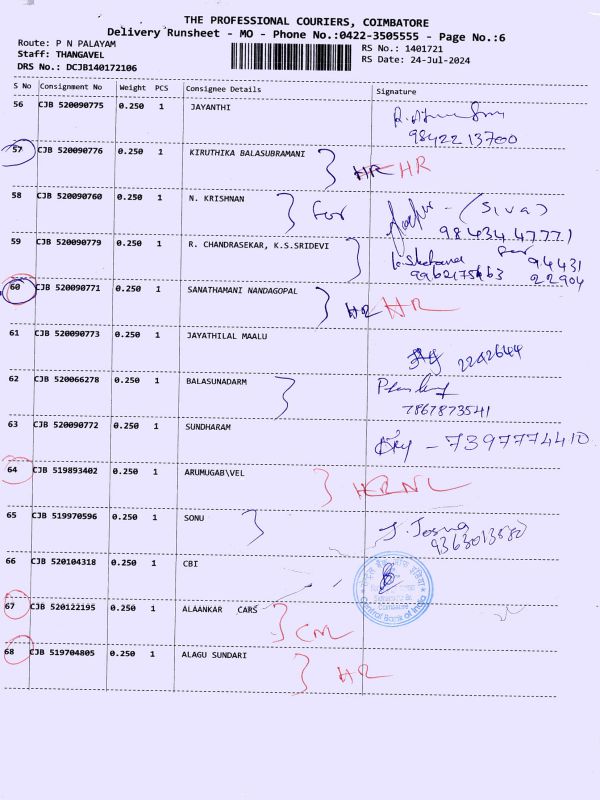 THE PROFESSIONAL COURIERS, COIMBATORE
Delivery Runsheet - MO - Phone No.:0422-3505555 - Page No.:6
Route: P N PALAYAM
Staff: THANGAVEL
DRS No.: DCJB140172106
RS No.: 1401721
RS Date: 24-Jul-2024
S No Consignment No Weight PCS Consignee Details Signature
56 CJB 520090775 0.250 1 JAYANTHI
9842213700
57 CJB 520090776 0.250 1 KIRUTHIKA BALASUBRAMANI HR HR
58 CJB 520090760 0.250 1 N. KRISHNAN for - (Siva)
9843447771
59 CJB 520090779 0.250 1 R. CHANDRASEKAR, K.S.SRIDEVI 94431
9962175663 22904
60 CJB 520090771 0.250 1 SANATHAMANI NANDAGOPAL HR HR
61 CJB 520090773 0.250 1 JAYATHILAL MAALU
2242644
62 CJB 520066278 0.250 1 BALASUNADARM
7867873541
63 CJB 520090772 0.250 1 SUNDHARAM - 7397774410
64 CJB 519893402 0.250 1 ARUMUGAB\VEL NL
65 CJB 519970596 0.250 1 SONU
66 CJB 520104318 0.250 1 CBI
Coimbatore
Central Bank of India
67 CJB 520122195 0.250 1 ALAANKAR CARS CM
68 CJB 519704805 0.250 1 ALAGU SUNDARI HR